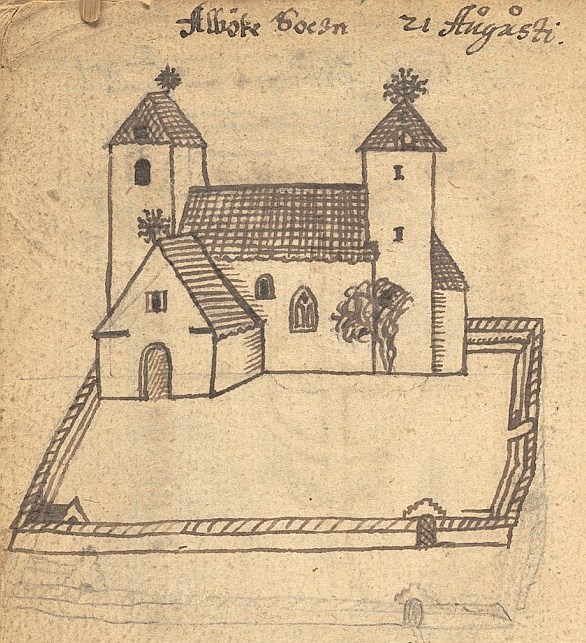 Alböke Socen 21 Augåsti.